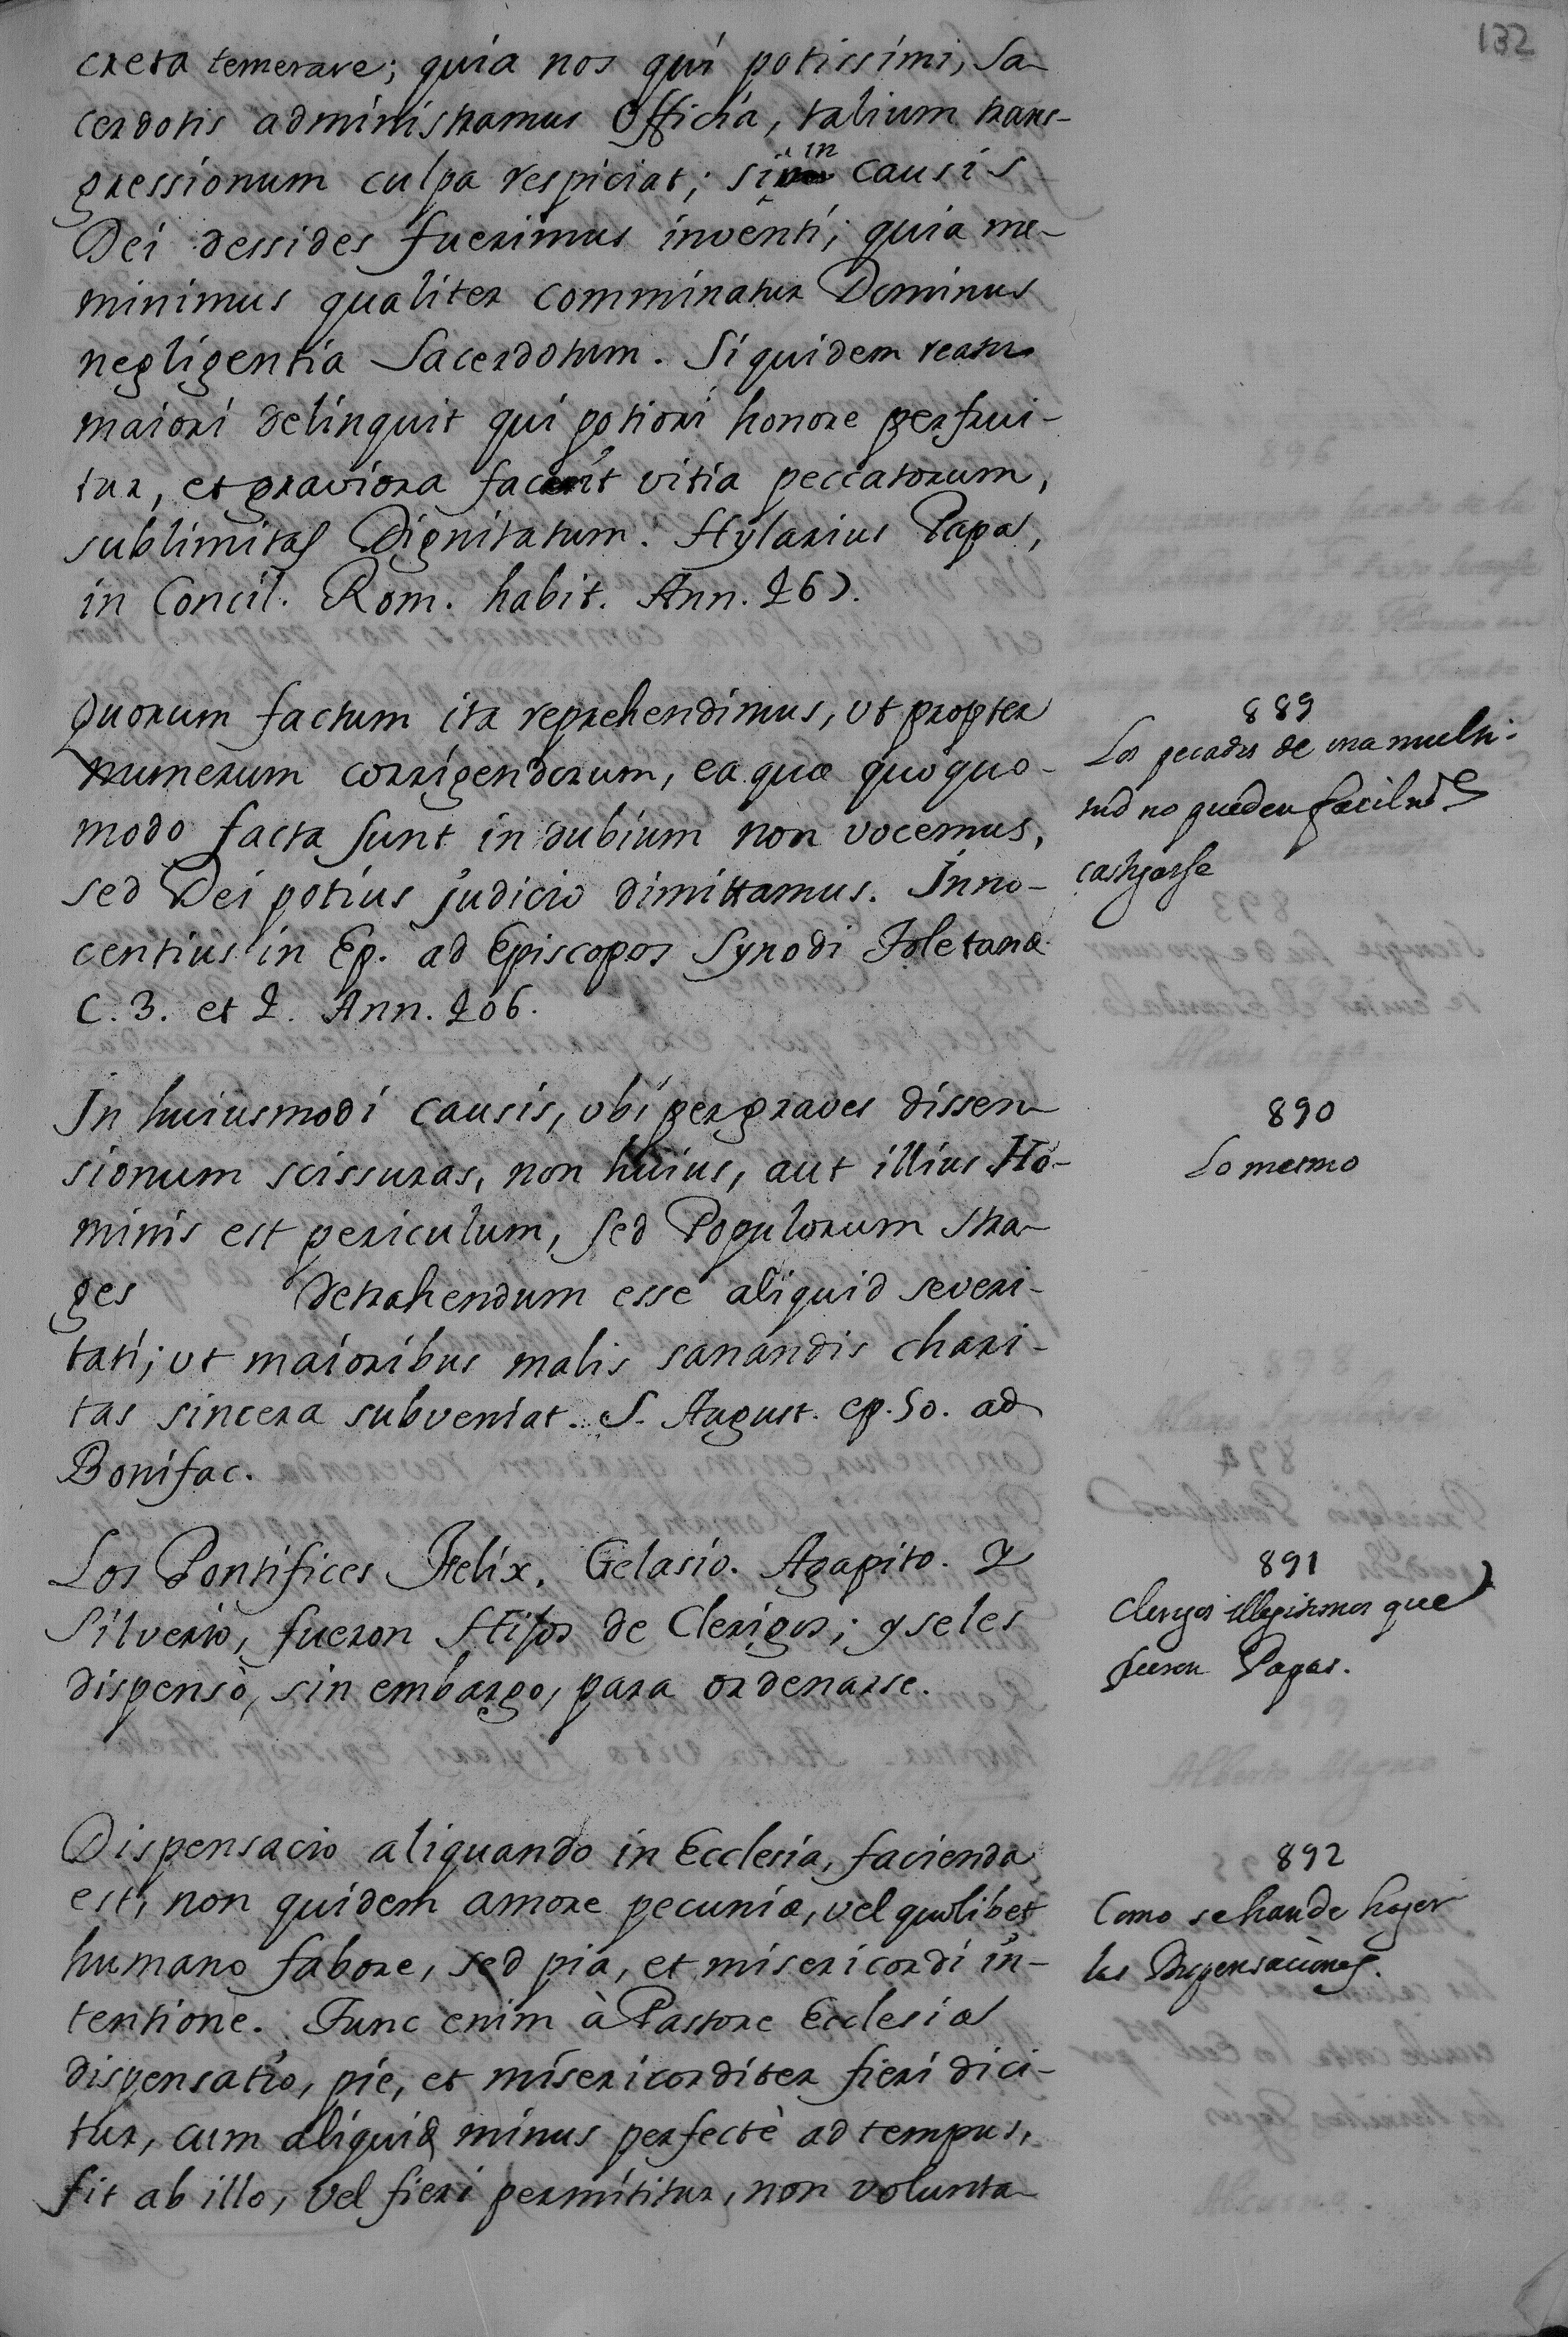 132
creta temerare; quia nos qui potissimi, Sa-
cerdotis administramus Officia, talium trans-
gressionum culpa respiciat; si in causis
Dei dessides fuerimus inventi; quia me-
minimus qualiter comminatur Dominus
negligentia Sacerdotum. Siquidem reatu
maiori delinquit qui potiori honore perfrui-
tur, et graviora facit vitia peccatorum,
sublimitas Dignitatum. Hylarius Papa,
in Concil. Rom. habit. Ann. 467.
Quorum factum ita reprehendimus, ut propter
numerum corrigendorum, ea quæ quoquo-
modo facta sunt in dubium non vocemus,
sed Dei potius judicio dimittamus. Inno-
centius in Ep. ad Episcopos Synodi Toletanæ
C. 3. et 4. Ann. 406.
889
Los pecados de una multi-
tud no pueden facilmte
castigarse
In huiusmodi causis, ubi per graves dissen-
sionum scissuras, non huius, aut illius Ho-
minis est periculum, sed Populorum stra-
ges detrahendum esse aliquid severi-
tati; ut maioribus malis sanandis chari-
tas sincera subveniat. S. August. ep. 50. ad
Bonifac.
890
Lo mesmo
Los Pontifices Felix, Gelasio. Agapito. Y
Silverio, fueron Hijos de Clerigos; y se les
dispensò, sin embargo, para ordenarse.
891
Clerigos illegitimos que
fueron Papas.
Dispensacio aliquando in Ecclesia, facienda
est, non quidem amore pecuniæ, vel quolibet
humano fabore, sed pia, et misericordi in-
tentione. Tunc enim à Pastore Ecclesiæ
dispensatio, pie, et misericorditer fieri dici-
tur, cum aliquid minus perfectè ad tempus,
fit ab illo, vel fieri permititur, non volunta-
892
Como se han de hazer
las Dispensaciones.